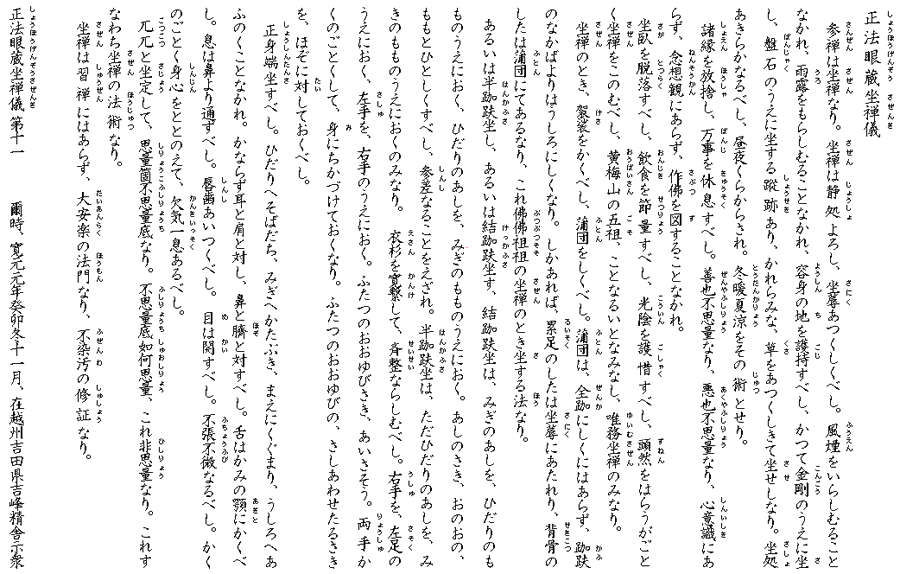 正法眼蔵坐禅儀
参禅は坐禅なり。坐禅は静処よろし、坐蓐あつくしくべし。風煙をいらしむること
なかれ、雨露をもらしむることなかれ、容身の地を護持すべし、かつて金剛のうえに坐
し、盤石のうえに坐する蹤跡あり、かれらみな、草をあつくしきて坐せしなり。坐処
あきらかなるべし、昼夜くらからざれ。冬暖夏涼をその術とせり。
諸縁を放捨し、万事を休息すべし。善也不思量なり、悪也不思量なり、心意識にあ
らず、念想観にあらず、作佛を図することなかれ。
坐臥を脱落すべし、飲食を節量すべし、光陰を護惜すべし、頭然をはらうがごと
く坐禅をこのむべし、黄梅山の五祖、ことなるいとなみなし、唯務坐禅のみなり。
坐禅のとき、袈裟をかくべし、蒲団をしくべし。蒲団は、全跏にしくにはあらず、跏趺
のなかばよりはうしろにしくなり。しかあれば、累足のしたは坐蓐にあたれり、背骨の
したは蒲団にてあるなり、これ佛佛祖祖の坐禅のとき坐する法なり。
あるいは半跏趺坐し、あるいは結跏趺坐す、結跏趺坐は、みぎのあしを、ひだりのも
ものうえにおく、ひだりのあしを、みぎのもものうえにおく。あしのさき、おのおの、
ももとひとしくすべし、参差なることをえざれ。半跏趺坐は、ただひだりのあしを、み
ぎのもものうえにおくのみなり。衣衫を寛繫して、斉整ならしむべし。右手を、左足の
うえにおく。左手を、右手のうえにおく。ふたつのおおゆびさき、あいささそう。両手か
くのごとくして、身にちかづけておくなり。ふたつのおおゆびの、さしあわせたるさき
を、ほぞに対しておくべし。
正身端坐すべし。ひだりへそばだち、みぎへかたぶき、まえにくぐまり、うしろへあ
ふのくことなかれ。かならず耳と肩と対し、鼻と臍と対すべし。舌はかみの顎にかくべ
し。息は鼻より通ずべし。唇歯あいつくべし。目は開すべし。不張不微なるべし。かく
のごとく身心をととのえて、欠気一息あるべし。
兀兀と坐定して、思量箇不思量底なり。不思量底如何思量、これ非思量なり。これす
なわち坐禅の法術なり。
坐禅は習禅にはあらず、大安楽の法門なり、不染汚の修証なり。
正法眼蔵坐禅儀 第十一　爾時、寛元元年癸卯冬十一月、在越州吉田県吉峰精舎示衆